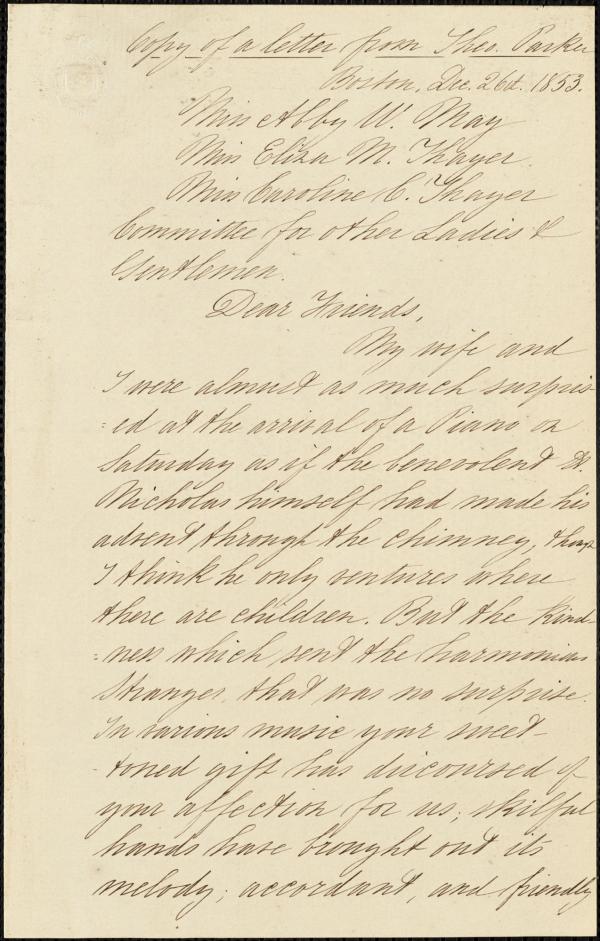 Copy of a letter from Theo. Parker
Boston, Dec. 26th. 1853.
Miss Abby W. May
Miss Eliza M. Thayer.
Miss Caroline C. Thayer
Committee for other Ladies &
Gentlemen.
Dear Friends,
My wife and
I were almost as much surpris-
=ed at the arrival of a Piano on
Saturday as if the benevolent St.
Nicholas himself had made his
advent through the chimney, though
I think he only ventures where
there are children. But the kind-
=ness which sent the harmonious
stranger, that was no surprise.
In various music your sweet-
-toned gift has discoursed of
your affection for us; skilful
hands have brought out its
melody; accordant, and friendly